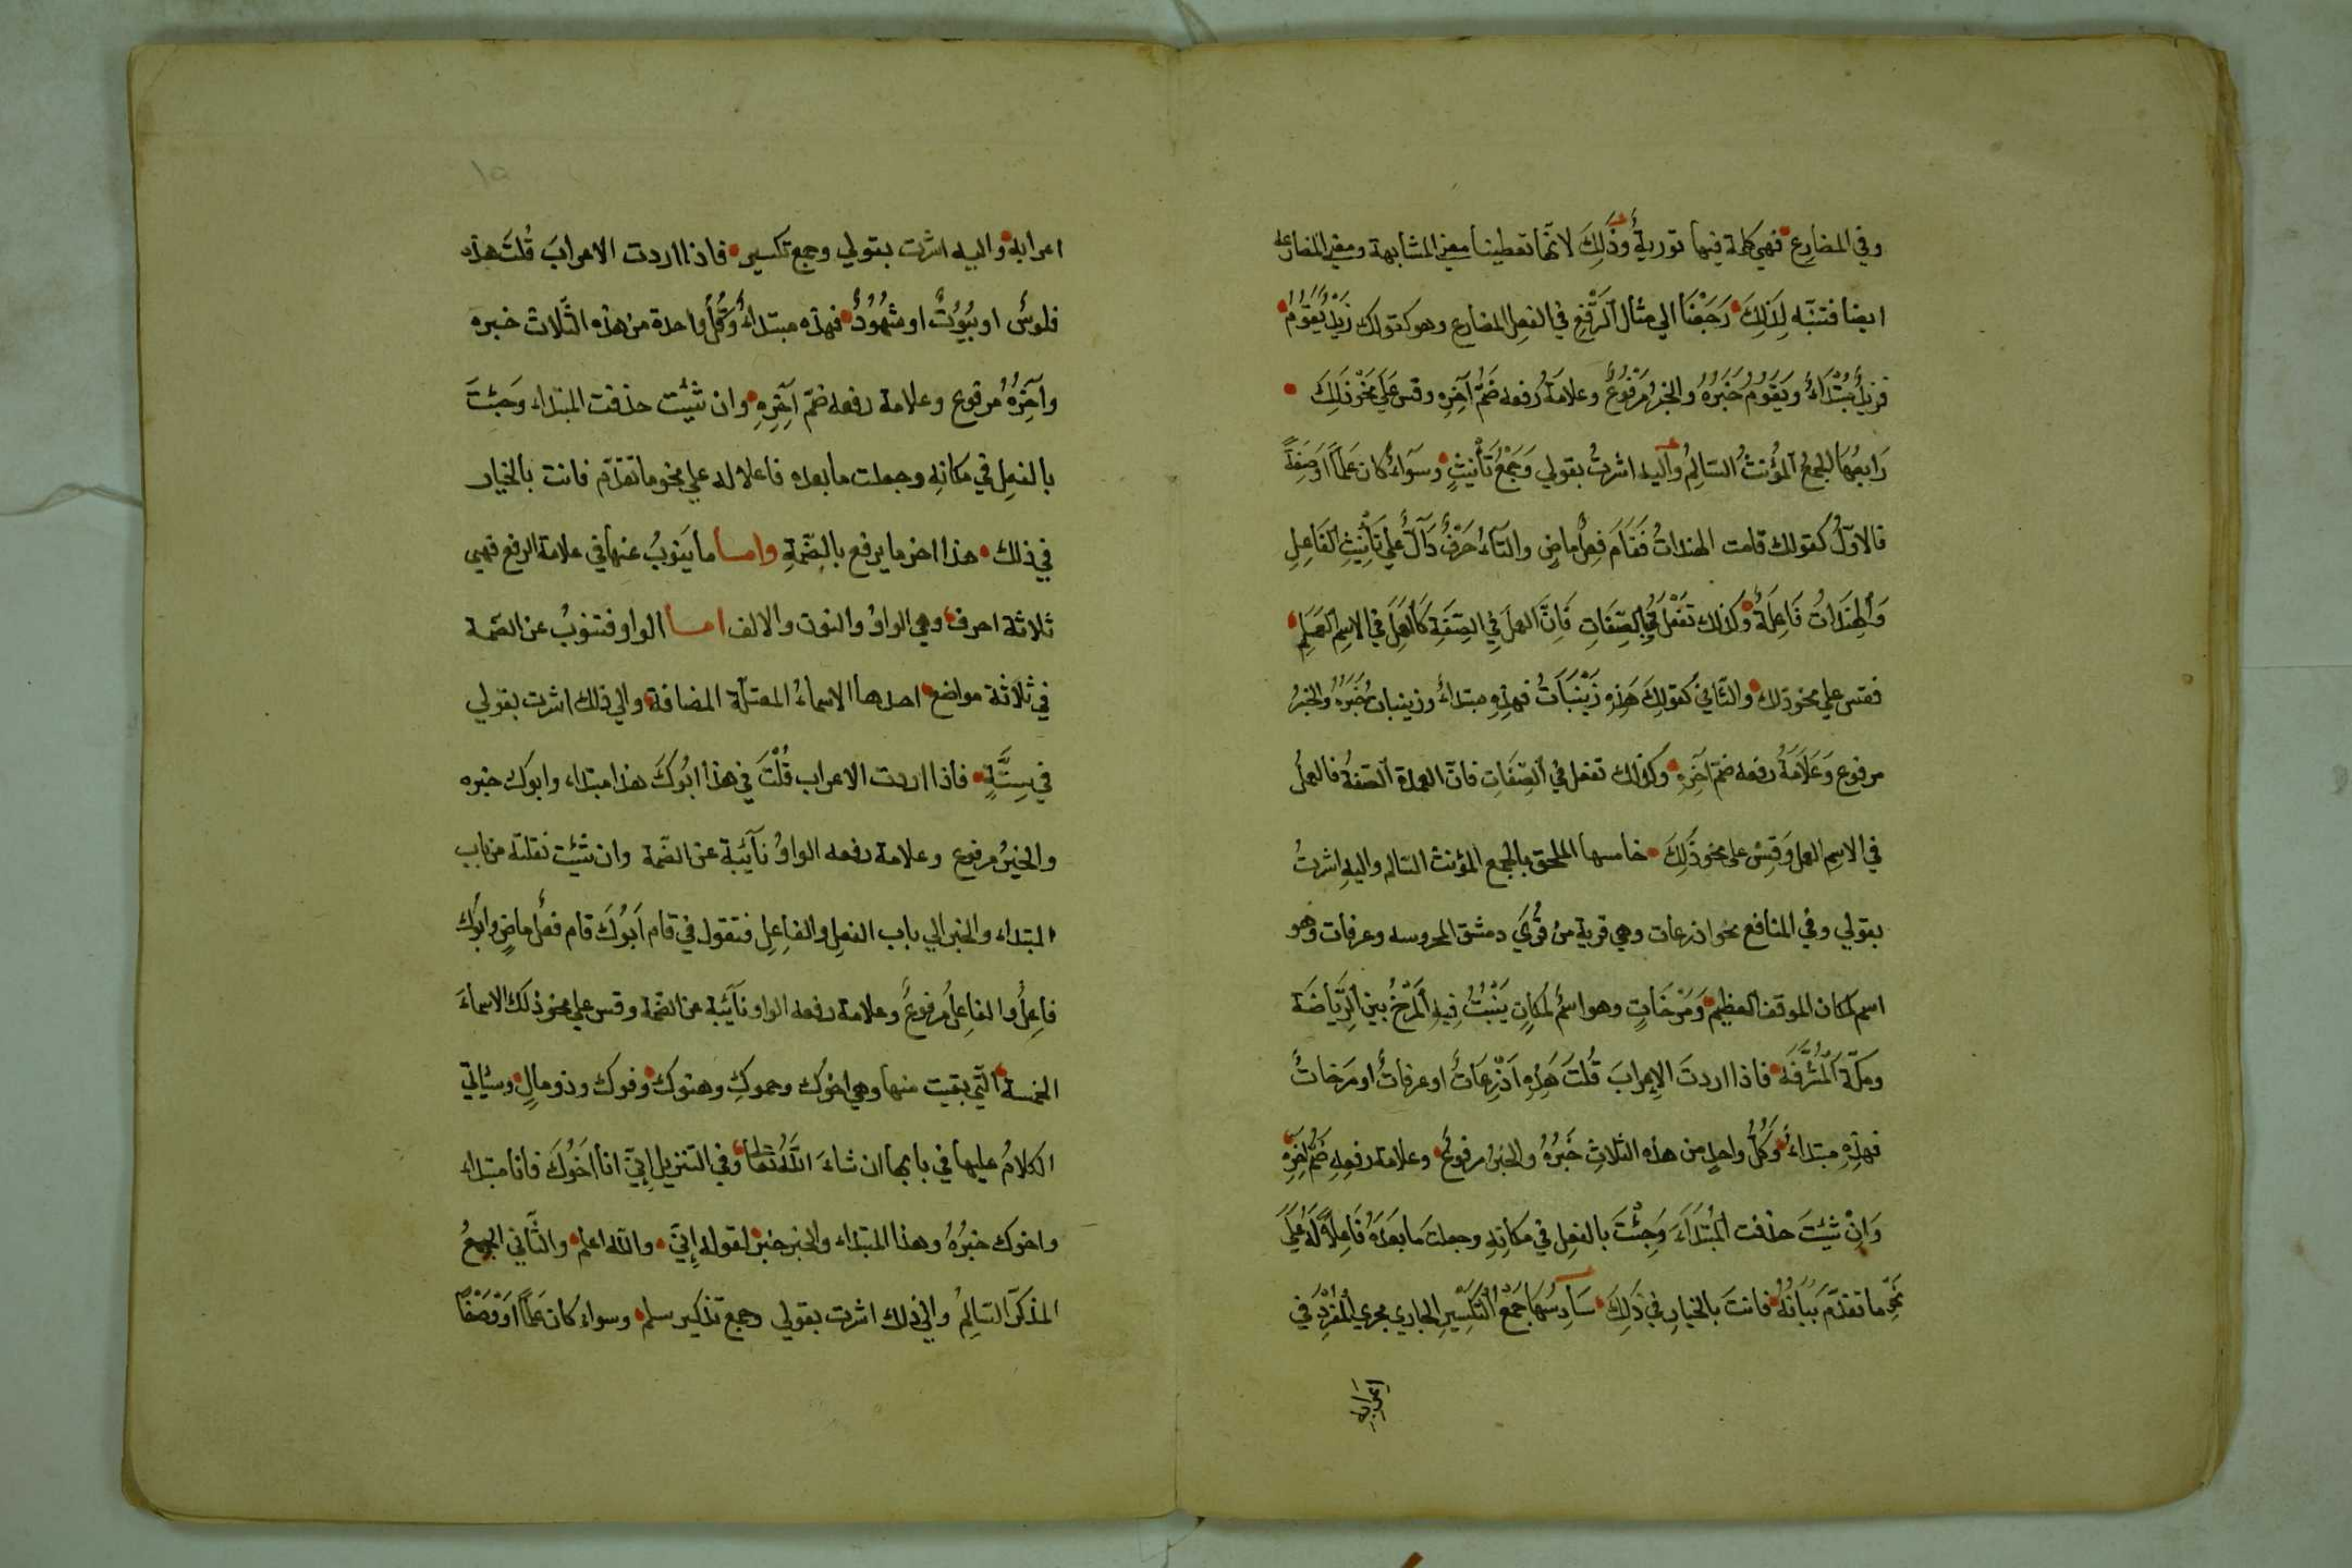 وفي المضارع فهي كلمة فيها تورية وَذَلِكَ لانّها تعطينا معنى المشابهة ومعنى المضارعة
ايضا فتنبّه لِذَلِكَ رَجَعْنَا الي مثال الرَّفْعِ في الفعل المضارع وهو كقولك زَيْدٌ يَقُومُ
فزيدٌ مُبْتَدَاءٌ وَيَقُومُ خَبَرُهُ والخبرُ مَرْفُوعٌ وعلامَةُ رفعه ضَمُّ آخِرِهِ وقس عَلَي نَحْوِ ذَلِكَ
رَابِعُهَا الجمعُ المؤُنثُ السَّالِمُ وَاليه اشرتُ بقولي وَجَمْعُ تَأْنيثٍ وسَوَآءٌ كان عَلَماً اَوْصِفَةً
فالاوّلُ كقولك قامت الهنداتُ فَقَامَ فِعلٌ ماضٍ والتآءُ حَرْفٌ دَآلٌّ علي تَأْنِيثِ الفَاعِلِ
وَالْهِنْدَاتُ فَاعِلَةٌ وكَذلك تَفْعَلُ في الصِّفَاتِ فَاِنَّ العملَ فِي الصِّفَةِ كَالْعَمَلِ في الاسِمِ العَلَمِ
فقس علي نحو ذلك والثَّاني كَقولِكَ هَذِهِ زَيْنَبَاتُ فهذِهِ مبتداءٌ وزينبات خَبَرُهُ والخبرُ
مرفوع وَعَلَامَةُ رفعه ضمّ آخِرِهِ وكذلك تفعل في الصِّفَاتِ فانّ العمدة الصّفةُ فالعملُ
في الاسِمِ العلم وَقِسْ على نحو ذَلِكَ خامسها الملحق بالجمع المؤنث السّالم واليهِ اشرتُ
بقولي وفي المنافع نحو اذرعات وهي قرية من قُرَي دمشق المحروسه وعرفات وهو
اسم لمكان الموقف العظيم وَمَرْخَاتٍ وهو اسمٌ لمكانٍ يَنْبُتُ فِيهِ المَرْخُ بين الرِّيَاضَة
ومكّة الْمُشَرَّفَة فاذا اردتَ الاِعرابَ قُلْتَ هَذِهِ اَذْرِعَاتٌ او عرفاتٌ اومَرَخاتٌ
فهذِهِ مبتداءٌ وَكُلُّ واحدٍ من هذه الثلاثِ خَبَرُهُ والخبرُ مرفوعٌ وعلامة رفعِهِ ضَمُّ آخِرِهِ
وَاِنْ شِيْتَ حذفت الْمُبْتَدَاءَ وَجِئْتَ بالفعِل في مكانِهِ وجعلتَ مَا بَعْدَهُ فَاعِلاً لَهُ عَلَي
نَحْوِ ما تقدّمَ بَيَانُهُ فانتَ بالخيارِ في ذَلِكَ سَادِسُهَا جَمْعُ التَّكْسِيرِ الجاري مجري الْمُفْرَدِ في
اعرابه
اعرابه واليه اشرت بقولي وجمع تكسير فاذا اردت الاعرابَ قُلتَ هذه
فلوسٌ او بيُوُتٌ اوشهُودٌ فهذه مبتداءٌ وَكُلُّ واحدة من هذه الثَّلاث خبره
وآخِرُهُ مُرفوع وعلامة رفعه ضمّ آخِرِهِ وان شيت حذفت المبتداء وَجئتَ
بالفعِل في مكانِهِ وجعلت ما بعده فاعلا له علي نحو ما تقدّم فانت بالخيار
في ذلك هذا اخر ما يرفع بالضّمةِ وامّا ما يَنوبُ عنها في علامة الرفع فهي
ثلاثة احرف وهي الواوُ والنون والالف امّا الواو فتنوبُ عن الضّمة
في ثلَاثة مواضع احدها الاسماءُ المعتلّة المضافة والي ذلك اشرت بقولي
في سِتَّةٍ فاذا اردت الاعراب قُلْتَ في هذا ابُوكَ هذا مبتداء وابوك خبره
والخبرُ مرفوع وعلامة رفعه الواوُ نآئِبة عن الضّمة وان شئت نقلته من باب
المبتداء والخبر الي باب الفعِل والفاِعِل فتقول في قام اَبُوكَ قام فعلٌ ماضٍ وابوك
فاعِلٌ والفاعِلُ مرفوعٌ وعلامة رفعه الواو نآئِبة عن الضّمة وقس علي نحو ذلك الاسماءَ
الخمسة الّتي بقيت منها وهي اخوك وحموكِ وهنوك وفوك وذو مالٍ وسيأتي
الكلامُ عليها في بابها ان شاءَ اللَّهُ تعالى وفي التنزيل اِنِّي انا اَخُوكَ فانا مبتداء
واخوك خبرُهُ وهذا المبتداء والخبر خبرٌ لقوله اِنِّي والله اعلم والثَّاني الجمعُ
المذكر السّالِمُ والي ذلك اشرت بقولي وجمع تذكير سلم وسواء كان علماً اَوْ وَصْفًا